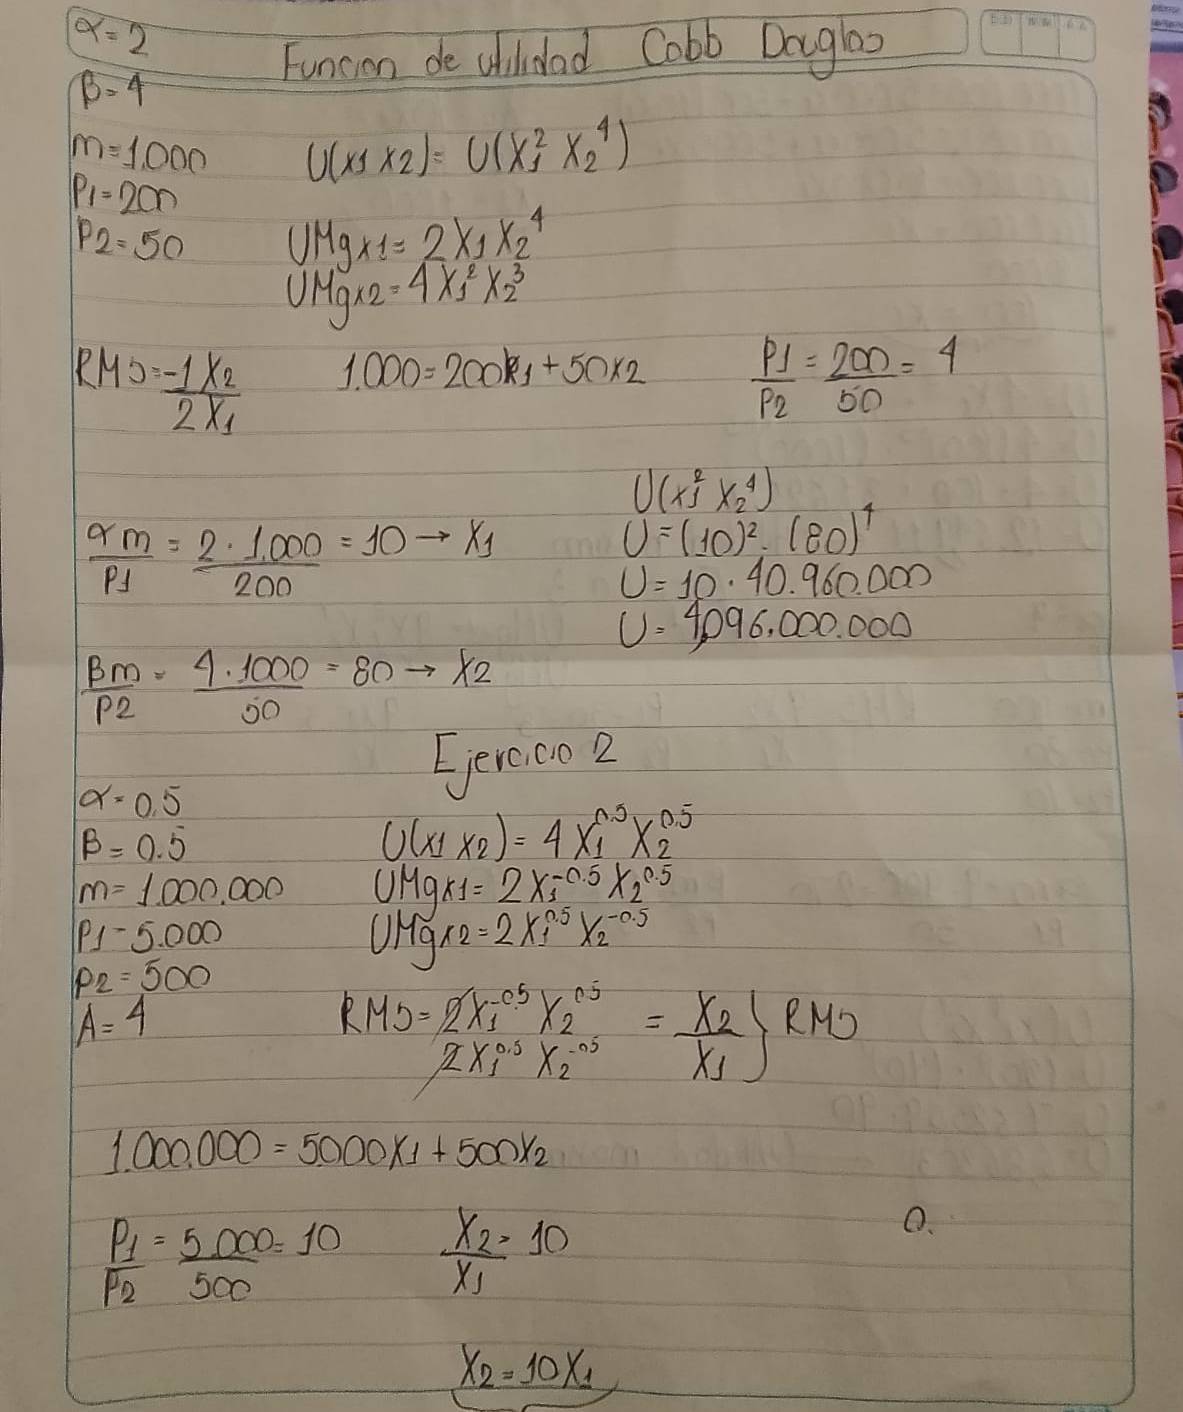 α=2
Funcion de utilidad Cobb Douglas
β=4
m=1.000 U(x1 x2)= U(X₁² X₂⁴)
P1=200
P2=50 UMgx1= 2X₁X₂⁴
UMgx2=4X₁²X₂³
RMS=-1X₂/2X₁ 1.000=200x₁+50x2 P1/P2=200/50=4
U(x₁² x₂⁴)
αm/P1 = 2·1.000/200 = 10 → X₁ U=(10)².(80)⁴
U=10·40.960.000
U=4,096.000.000
βm/P2 = 4·1000/50 = 80 → X2
Ejercicio 2
α=0.5
β=0.5 U(x1 x2)= 4X₁^0.5 X₂^0.5
m=1.000.000 UMgx1=2X₁^-0.5 X₂^0.5
P1=5.000 UMgx2=2X₁^0.5 X₂^-0.5
P2=500
A=4 RMS=2X₁^-0.5 X₂^0.5/2X₁^0.5 X₂^-0.5 = X₂/X₁ } RMS
1.000.000=5000X₁+500X₂
P₁/P₂=5.000/500=10 X₂/X₁=10 0.
X₂=10X₁